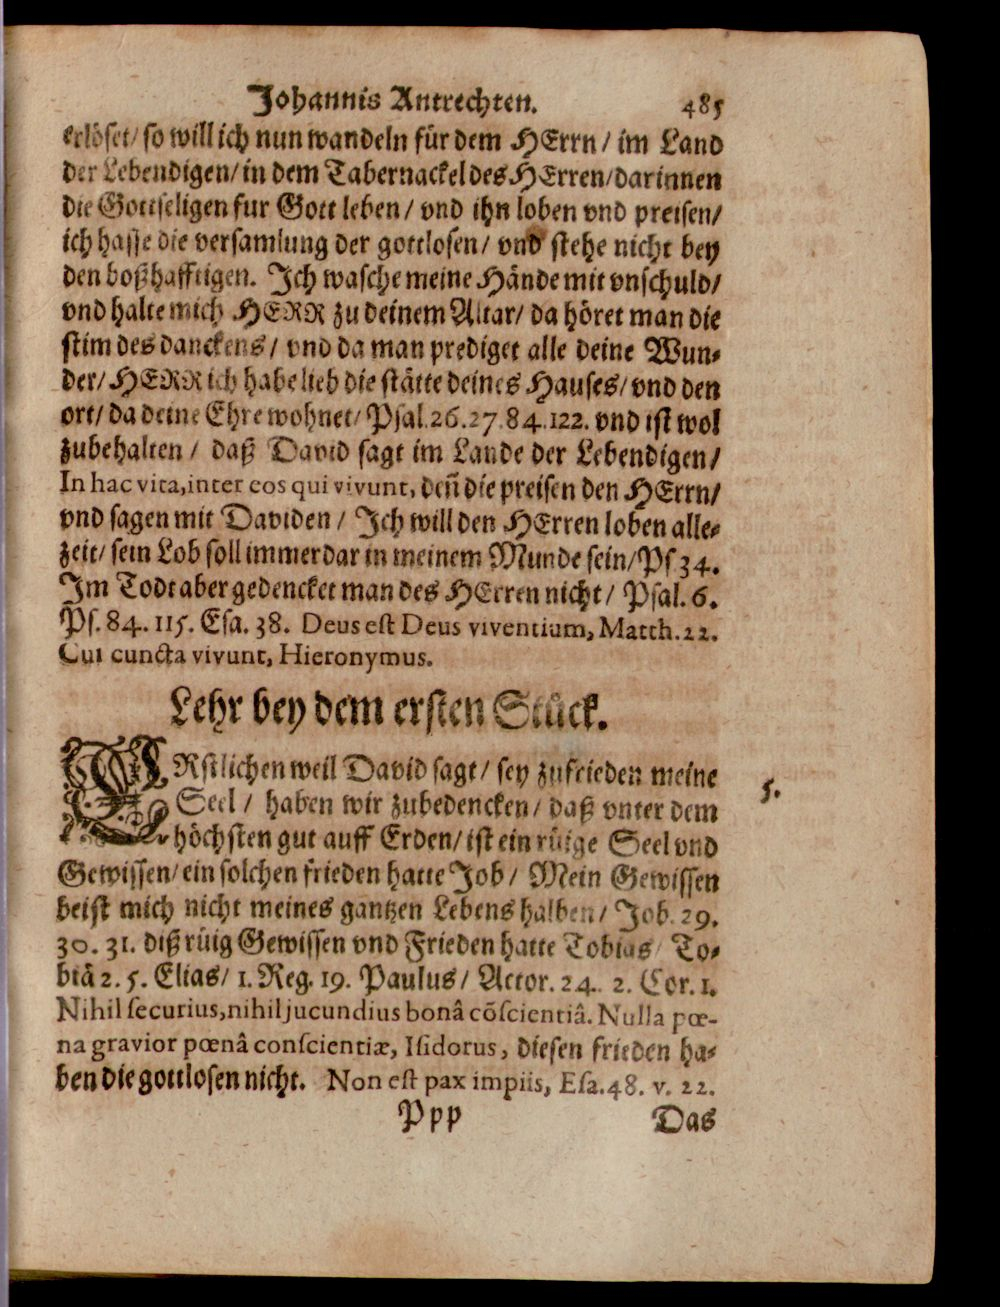 Johannis Antrechten. 485
erlöset/ so will ich nun wandeln für dem HErrn / im Land
der Lebendigen/ in dem Tabernackel des HErren/ darinnen
die Gottseligen fur Gott leben / vnd ihn loben vnd preisen/
ich hasse die versamlung der gottlosen/ vnd stehe nicht bey
den boßhafftigen. Ich wasche meine Hände mit vnschuld/
vnd halte mich HERR zu deinem Altar/ da höret man die
stim des danckens / vnd da man prediget alle deine Wun-
der/ HERR ich habe lieb die stätte deines Hauses/ vnd den
ort/ da deine Ehre wohnet/ Psal.26.27.84.122. vnd ist wol
zubehalten / daß David sagt im Lande der Lebendigen/
In hac vita, inter eos qui vivunt, deñ die preisen den HErrn/
vnd sagen mit Daviden / Ich will den HErren loben alle-
zeit/ sein Lob soll immerdar in meinem Munde sein/ Ps 34.
Im Todt aber gedencket man des HErren nicht / Psal. 6.
Ps. 84. 115. Esa. 38. Deus est Deus viventium, Matth. 22.
Cui cuncta vivunt, Hieronymus.
Lehr bey dem ersten Stück.
ERstlichen weil David sagt / sey zufrieden meine
Seel / haben wir zubedencken / daß vnter dem
höchsten gut auff Erden/ ist ein rüige Seel vnd
Gewissen/ ein solchen frieden hatte Job / Mein Gewissen
beist mich nicht meines gantzen Lebens halben / Job. 29.
30. 31. diß rüig Gewissen vnd Frieden hatte Tobias/ To-
biä 2. 5. Elias/ 1. Reg. 19. Paulus/ Actor. 24. 2. Cor. 1.
Nihil securius, nihil jucundius bonâ cõscientiâ. Nulla pœ-
na gravior pœnâ conscientiæ, Isidorus, diesen frieden ha-
ben die gottlosen nicht. Non est pax impiis, Esa. 48. v. 22.
5.
Ppp Das